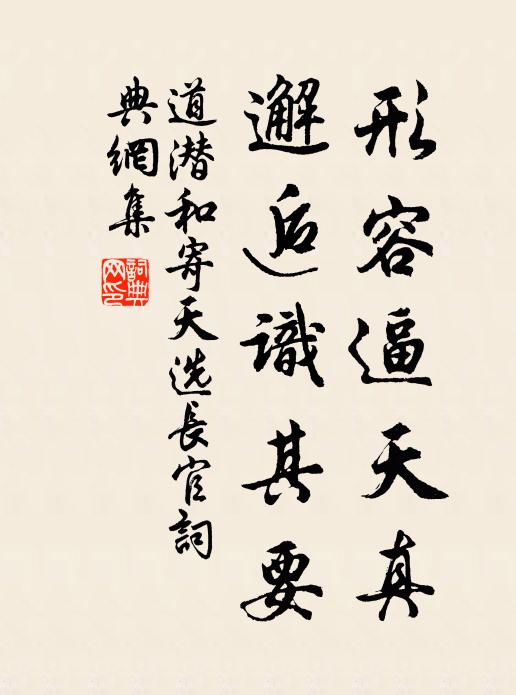 形容逼天真
邂逅識其要
道潜和寄天选長官詞
典網集
詞典
网印